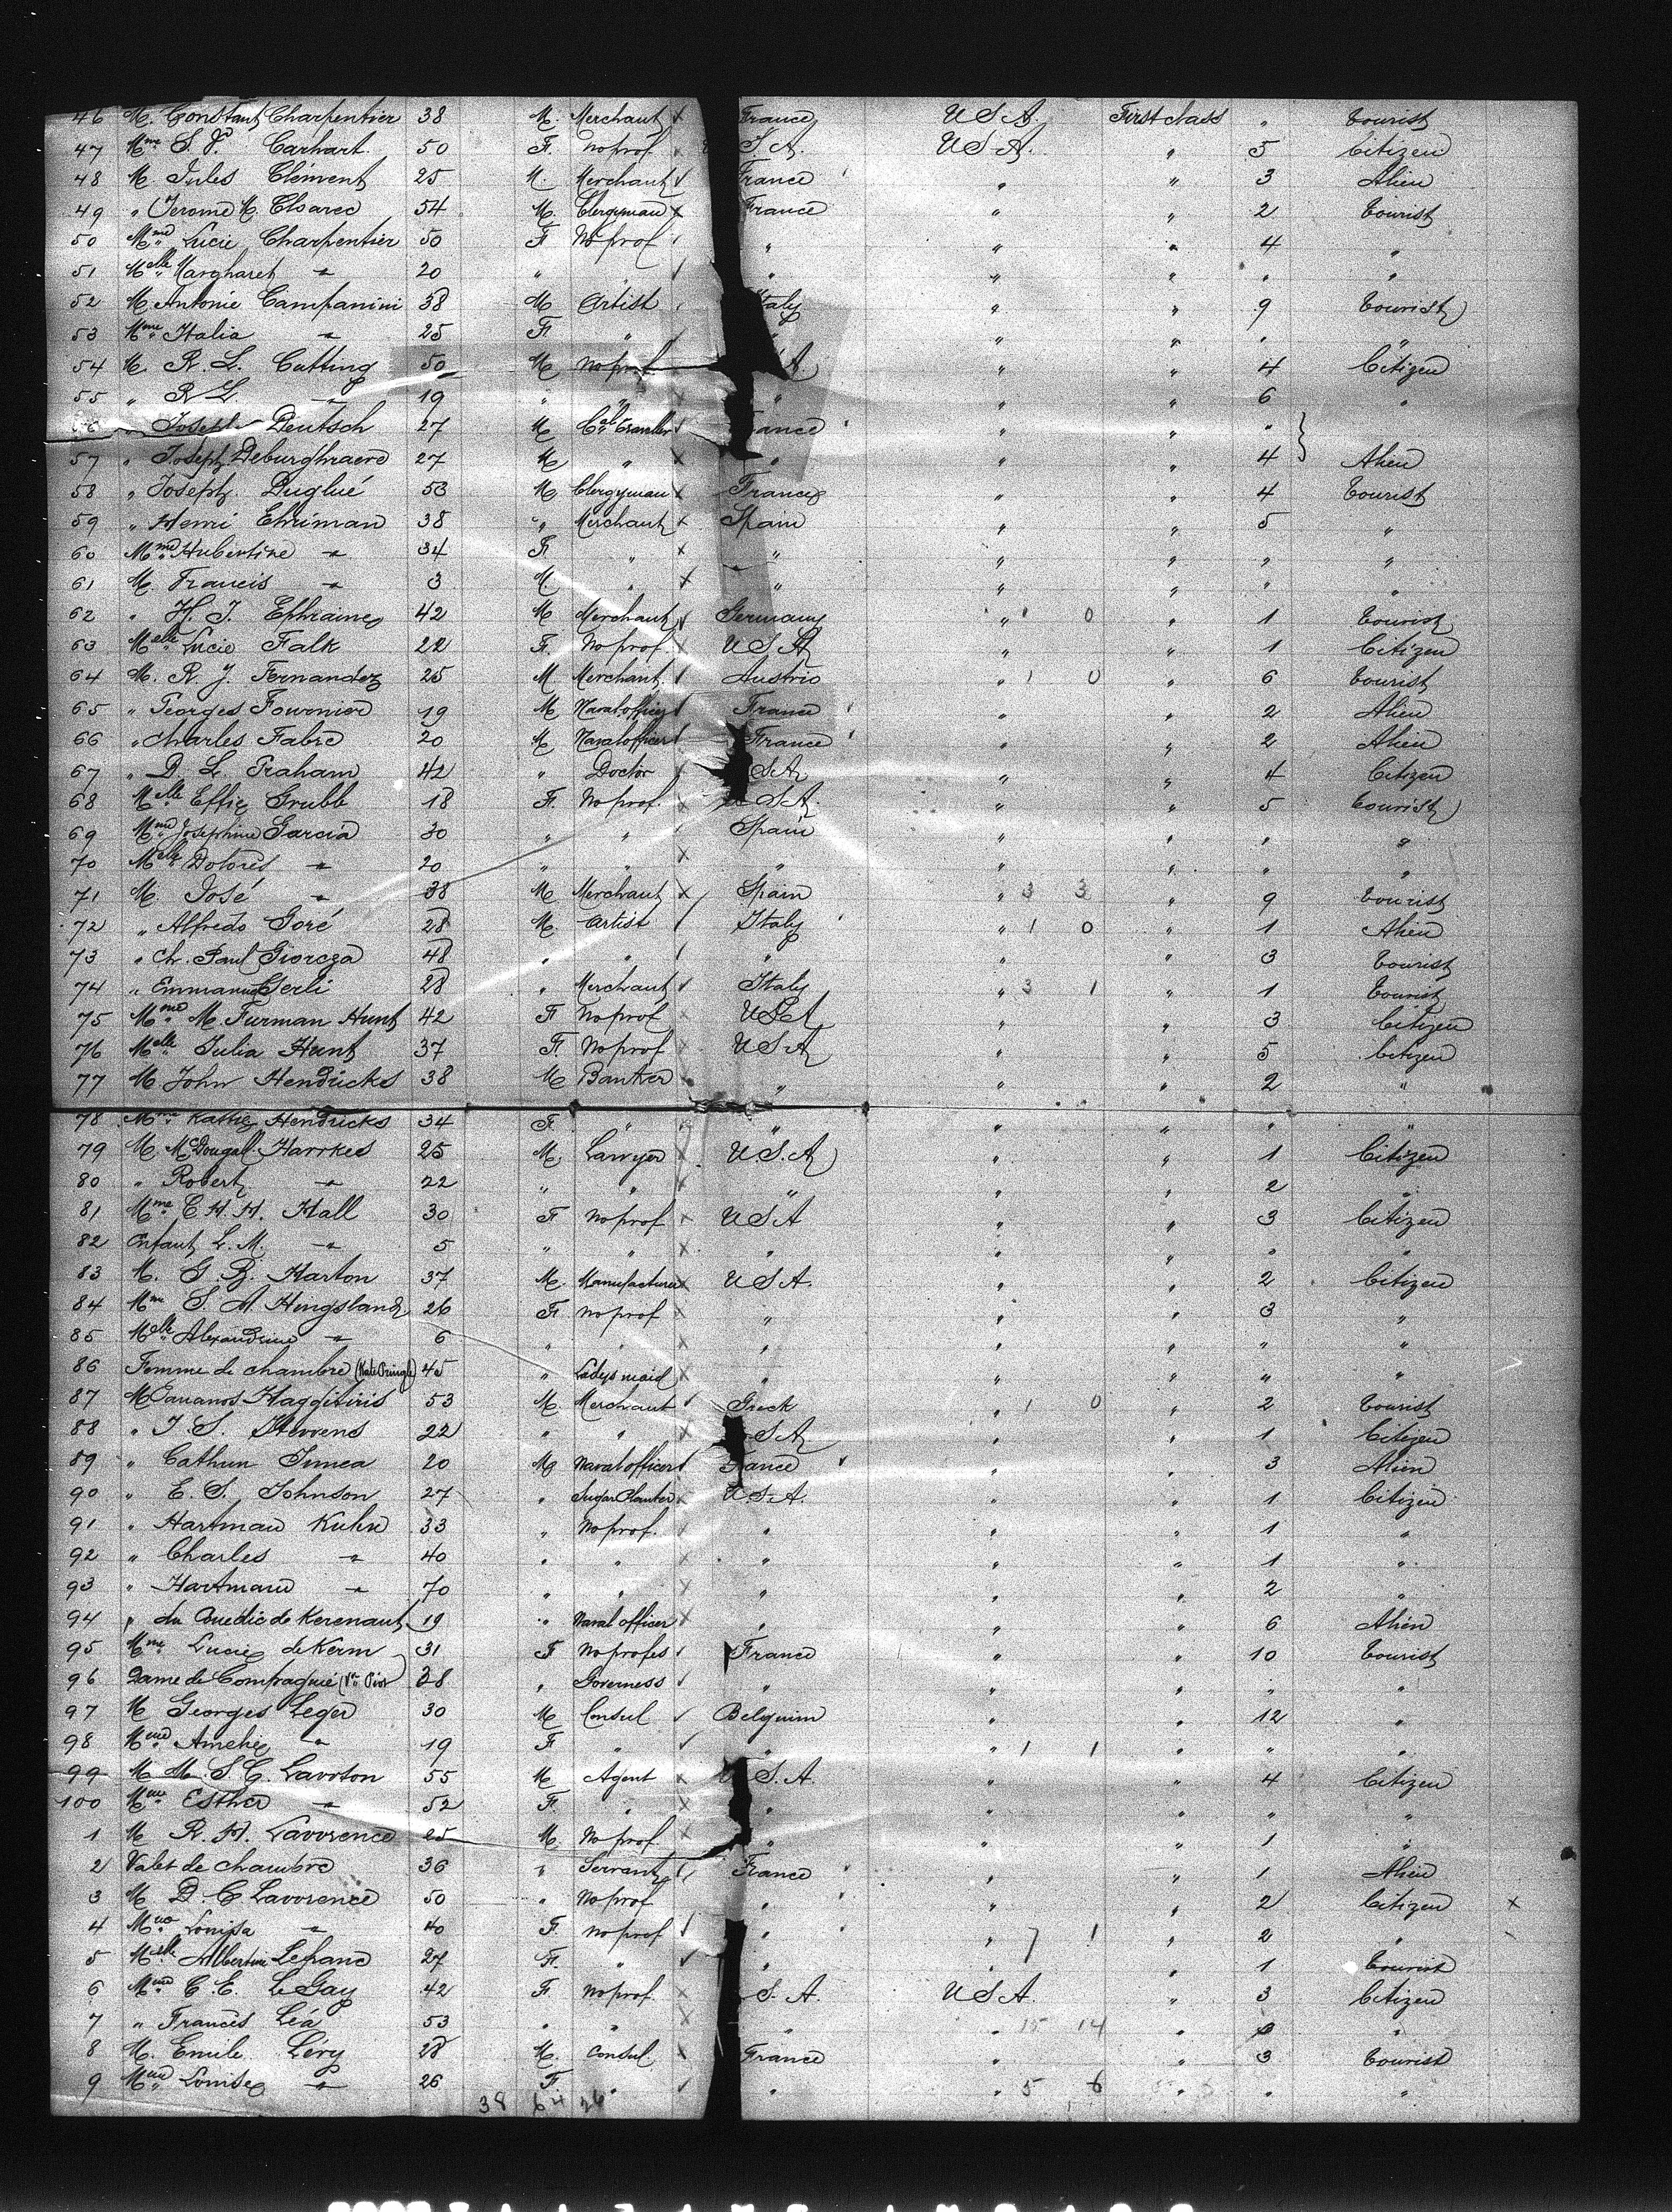 46 M. Constant Charpentier 38 M. Merchant x France U.S.A. First class " Tourist
47 Mme S. Carhart 50 F. No prof x S.A. U.S.A. " 5 Citizen
48 M. Jules Clément 25 M. Merchant France " " 3 Alien
49 " Jerome M. Cloarec 54 M. Clergyman x France " " 2 Tourist
50 Mme Lucie Charpentier 50 F No prof " " " 4 "
51 Melle Margharet " 20 " " " " " " "
52 M Antonie Campanini 38 M Artist Italy " " 9 Tourist
53 Mme Italia " 25 F. " " " " " "
54 M. R. L. Cutting 50 M No prof A. " " 4 Citizen
55 " R L " 19 " " x " " " 6 "
" Joseph Deutsch 27 M Cal Traveller France " " "
57 " Joseph Deburghraere 27 M " x " " " 4 Alien
58 " Joseph Duglué 53 M Clergyman x France " " 4 Tourist
59 " Henri Ehriman 38 " Merchant x Spain " " 5 "
60 Mme Hubertine " 34 F. " x " " " " "
61 M. Francis " 3 M. " x " " " " "
62 " H. J. Ephraim 42 M Merchant Germany " 1 0 " 1 Tourist
63 Melle Lucie Falk 22 F. No prof. U.S.A " " 1 Citizen
64 M. R. J. Fernandez 25 M Merchant Austria " 1 0 " 6 Tourist
65 " Georges Fournier 19 M Naval officer France " " 2 Alien
66 " Charles Fabre 20 M Naval officer France " " 2 Alien
67 " D. L. Graham 42 " Doctor S.A " " 4 Citizen
68 Melle Effie Grubb 18 F. No prof. x U.S.A. " " 5 Tourist
69 Mme Josephine Garcia 30 " " Spain " " " "
70 Melle Dolorès " 20 " " x " " " " "
71 M. José " 38 M Merchant x Spain " 3 3 " 9 Tourist
72 " Alfredo Goré 28 M. Artist Italy " 1 0 " 1 Alien
73 " Ch. Paul Giorcza 48 " " " " " 3 Tourist
74 " Emmanuel Gerli 28 " Merchant Italy " 3 1 " 1 Tourist
75 Mme M. Furman Hunt 42 F No prof x U.S.A " " 3 Citizen
76 Melle Julia Hunt 37 F. No prof x U.S.A " " 5 Citizen
77 M John Hendricks 38 M Banker " " " 2 "
78 Mme Kattie Hendricks 34 F. " " " " " "
79 M. McDougall Hawkes 25 M. Lawyer U.S.A " " 1 Citizen
80 " Robert " 22 " " x " " " 2 "
81 Mme C H. H. Hall 30 F No prof x U.S.A " " 3 Citizen
82 Enfant L. M. " 5 " " x " " " " "
83 M. G. B. Harton 37 M. Manufacturer U.S.A. " " 2 Citizen
84 Mme S. A Hingsland 26 F. No prof x " " " 3 "
85 Melle Alexandrine " 6 " " x " " " " "
86 Femme de chambre (Kate Pringle) 45 " Lady's maid x " " " " "
87 M Haggitiris 53 M. Merchant Greek " 1 0 " 2 Tourist
88 " J. S. Hewens 22 " " x S.A " " 1 Citizen
89 " Cathun Jimea 20 M Naval officer France " " 3 Alien
90 " E. S. Johnson 27 " Sugar Planter x U.S.A. " " 1 Citizen
91 " Hartman Kuhn 33 " No prof. " " " 1 "
92 " Charles " 40 " " x " " " 1 "
93 " Hartmann " 70 " " x " " " 2 "
94 " du Couedic de Kerenaut 19 " Naval officer x " " " 6 Alien
95 Mme Lucie de Kerm 31 F No profes France " " 10 Tourist
96 Dame de Compagnie 28 " Governess " " " " "
97 M Georges Leger 30 M Consul Belguim " " 12 "
98 Mme Amelie " 19 F " " " 1 1 " " "
99 M M. S. G. Lavoton 55 M Agent x S.A. " " 4 Citizen
100 Mme Esther " 52 F. " x " " " " "
1 M R. H. Lavorence 25 M. No prof. x " " " 1 "
2 Valet de chambre 36 " Servant France " " 1 Alien
3 M D. C Lavorence 50 " No prof " " " 2 Citizen x
4 Mme Louisa " 40 F. No prof " " 7 1 " 2 "
5 Melle Albertine Lefranc 27 F. " " " " 1 Tourist
6 Mme C. E. Le Gay 42 F No prof. x S. A. U.S.A. " 3 Citizen
7 " Francès Léa 53 " " x " " 15 14 " 3 "
8 M. Emile Lévy 28 M. Consul x France " " 3 Tourist
9 Mme Louise " 26 F. " " " 5 6 " " "
38 64 26